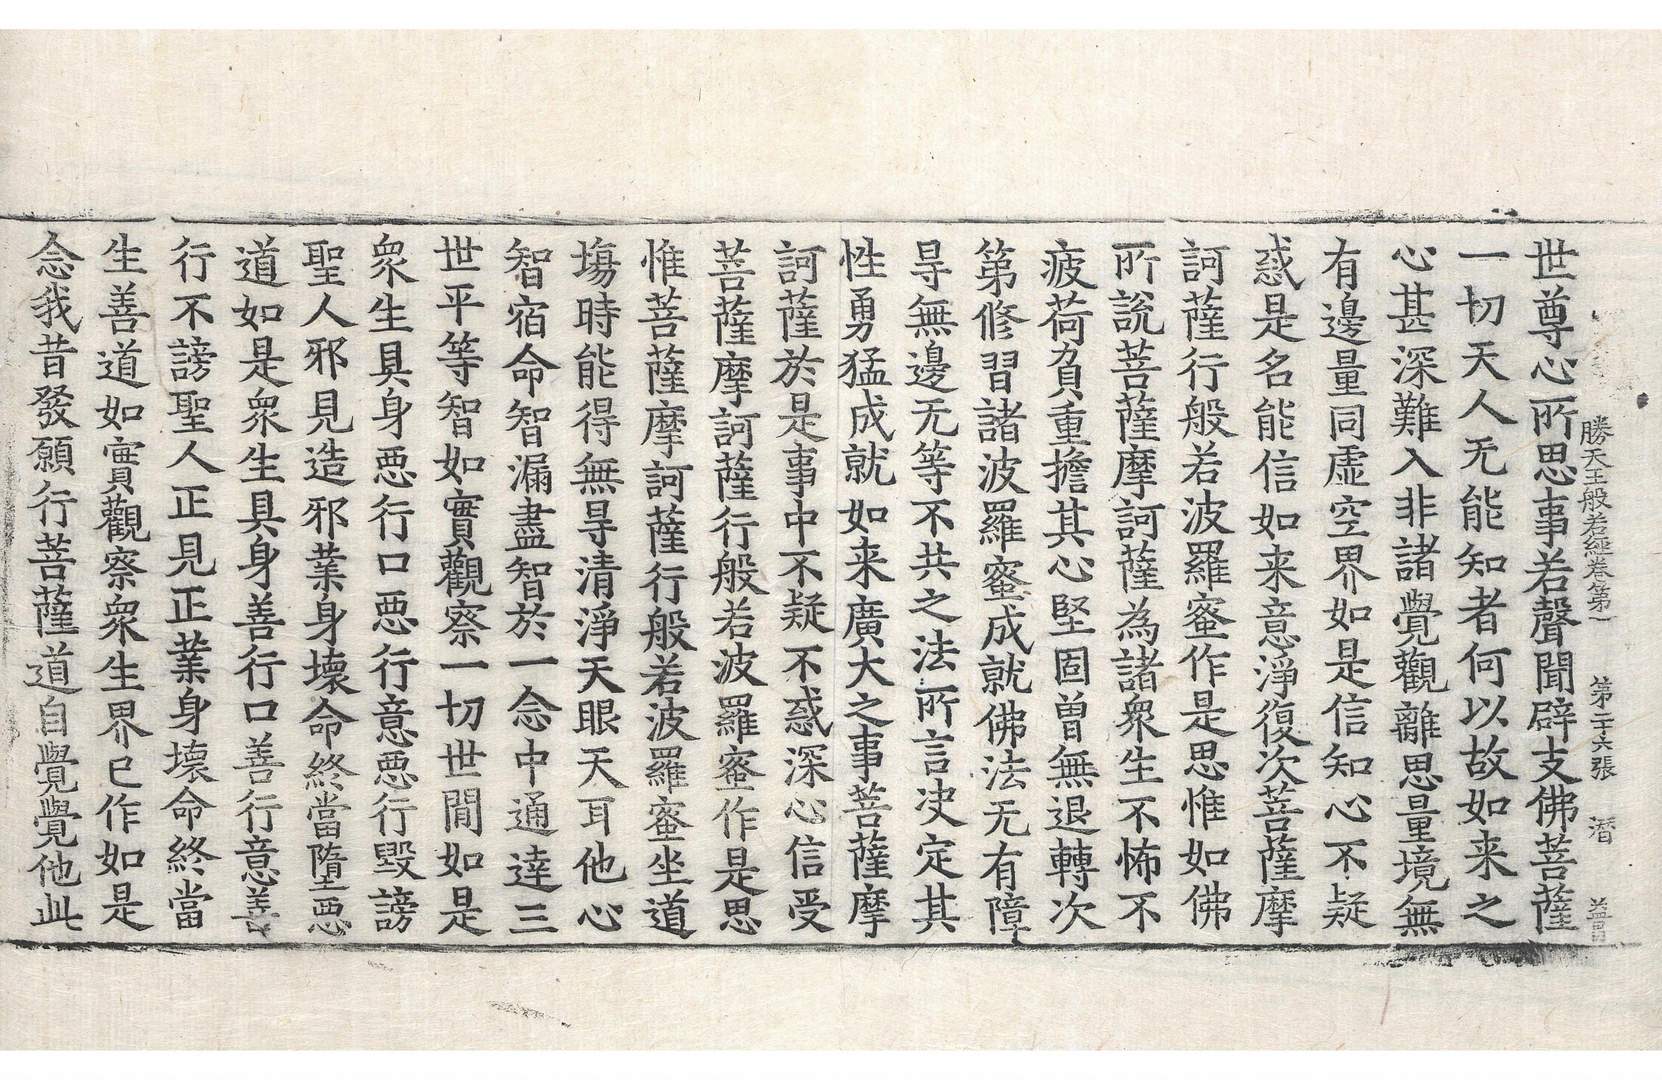 勝天王般若經卷第一 第二十六張 潛
世尊心所思事若聲聞辟支佛菩薩
一切天人无能知者何以故如来之
心甚深難入非諸覺觀離思量境無
有邊量同虛空界如是信知心不疑
惑是名能信如来意淨復次菩薩摩
訶薩行般若波羅蜜作是思惟如佛
所說菩薩摩訶薩為諸衆生不怖不
疲荷負重擔其心堅固曽無退轉次
第修習諸波羅蜜成就佛法无有障
㝵無邊无等不共之法所言决定其
性勇猛成就如来廣大之事菩薩摩
訶薩於是事中不疑不惑深心信受
菩薩摩訶薩行般若波羅蜜作是思
惟菩薩摩訶薩行般若波羅蜜坐道
塲時能得無㝵清淨天眼天耳他心
智宿命智漏盡智於一念中通達三
世平等智如實觀察一切世間如是
衆生具身惡行口惡行意惡行毀謗
聖人邪見造邪業身壞命終當墮惡
道如是衆生具身善行口善行意善
行不謗聖人正見正業身壞命終當
生善道如實觀察衆生界已作如是
念我昔發願行菩薩道自覺覺他此